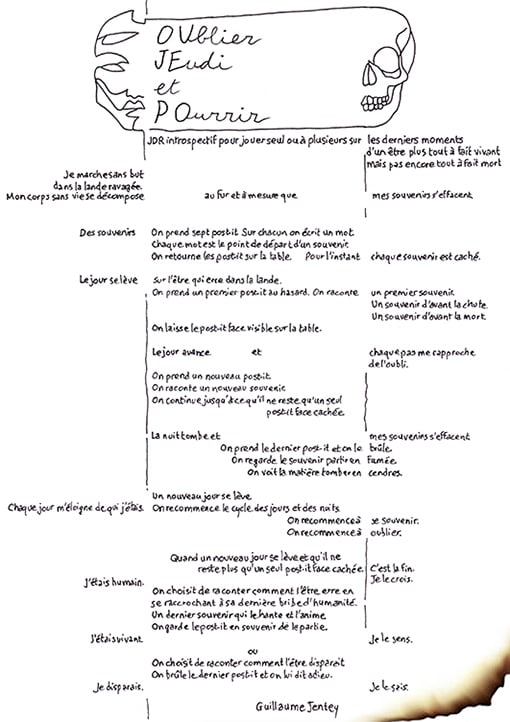 OUblier
JEudi
et
POurrir
JDR introspectif pour jouer seul ou à plusieurs sur les derniers moments
d'un être plus tout à fait vivant
mais pas encore tout à fait mort
Je marche sans but
dans la lande ravagée.
Mon corps sans vie se décompose au fur et à mesure que mes souvenirs s'effacent
Des souvenirs On prend sept postit Sur chacun on écrit un mot.
Chaque mot est le point de départ d'un souvenir.
On retourne les postit sur la table. Pour l'instant chaque souvenir est caché.
Le jour se lève sur l'être qui erre dans la lande.
On prend un premier postit au hasard. On raconte un premier souvenir.
Un souvenir d'avant la chute.
Un souvenir d'avant la mort.
On laisse le postit face visible sur la table.
Le jour avance et chaque pas me rapproche
de l'oubli.
On prend un nouveau postit.
On raconte un nouveau souvenir
On continue jusqu'à ce qu'il ne reste qu'un seul
postit face cachée.
La nuit tombe et mes souvenirs s'effacent
On prend le dernier postit et on le brûle.
On regarde le souvenir partir en fumée.
On voit la matière tomber en cendres.
Un nouveau jour se lève.
Chaque jour m'éloigne de qui j'étais. On recommence le cycle des jours et des nuits.
On recommence à se souvenir.
On recommence à oublier.
Quand un nouveau jour se lève et qu'il ne
reste plus qu'un seul postit face cachée C'est la fin.
Je le crois.
J'étais humain.
On choisit de raconter comment l'être erre en
se raccrochant à sa dernière bribe d'humanité.
Un dernier souvenir qui le hante et l'anime
On garde le postit en souvenir de la partie.
J'étais vivant. Je le sens.
ou
On choisit de raconter comment l'être disparait
On brûle le dernier postit et on lui dit adieu.
Je disparais. Je le sais.
Guillaume Jentey